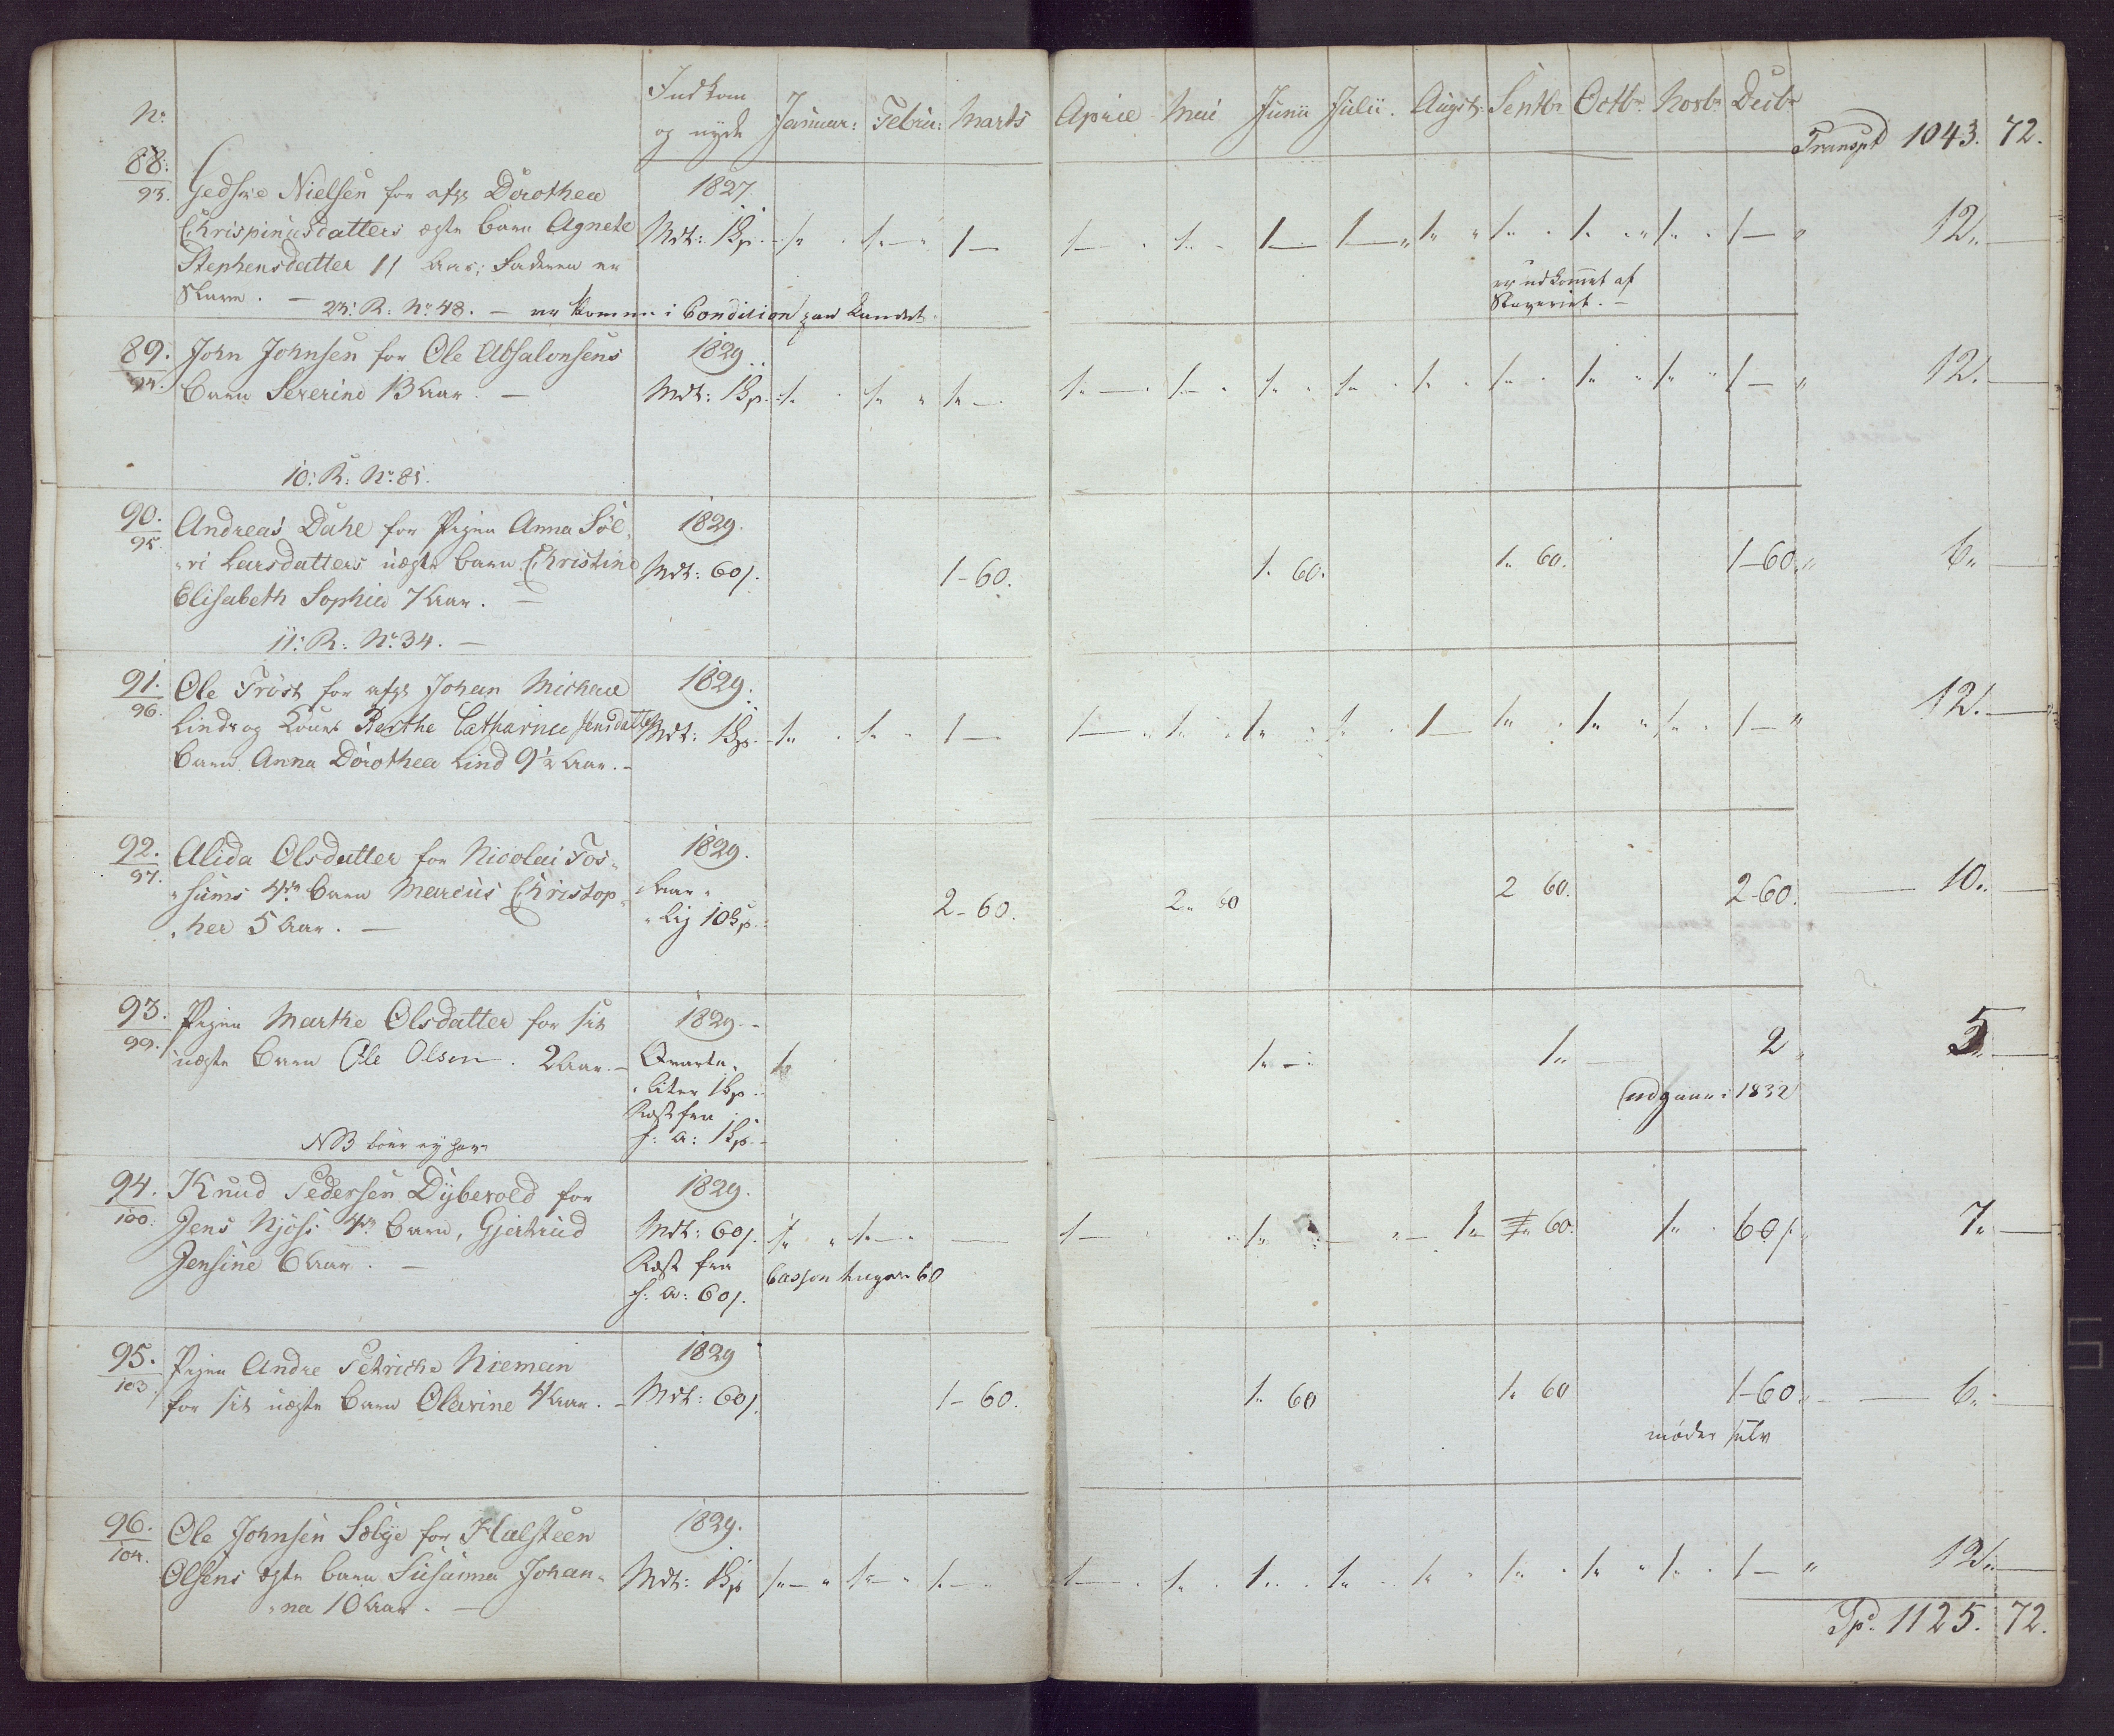 Nr. Indkom og nyde Januar: Febru: Marts Aprie Mai Junii Julii. Augst: Septbr Octbr Novbr Decbr
Transpt 1043. 72.
88. 93. Gedske Nielsen for afg Dorothea 1827.
Chrispinusdatters ægte barn Agnete Mdt: 1 Sp. 1 1 1 1 1 1 1 1 1 1 1 1 12
Stephensdatter 11 Aar; Faderen er
Slave. er udkommet af
Slaveriet.
23: R: No 48. er kommen i Condition paa Landet
89. 94. John Johnsen for Ole Absalonsens 1829
barn Severine 13 Aar. Mdt: 1 Sp. 1 1 1 1 1 1 1 1 1 1 1 1 12.
10: R: No: 81.
90. 95. Andreas Dahl for Pigen Anna Söl 1829.
ri Larsdatters uægte barn Christine Mdt: 60 s. 1-60. 1. 60. 1. 60. 1-60. 6
Elisabeth Sophia 7 Aar.
11: R: No: 34.
91. 96. Ole Tröst for afg Johan Michael 1829.
Linds og Kones Berthe Catharina Jensdatters Mdt: 1 Sp. 1 1 1 1 1 1 1 1 1 1 1 1 12.
barn Anna Dorothea Lind 9½ Aar.
92. 97. Alida Olsdatter for Nicolai Fos- 1829.
sums 4de barn Marcus Christop Aar
her 5 Aar. lig 10 Sp. 2-60. 2. 60 2 60. 2-60. 10.
93. 99. Pigen Marthe Olsdatter for sit 1829.
uægte barn Ole Olsen. 2 Aar. Qvarta- 1 1 1 2 5
liter 1 Sp.
udgaar i 1832
Rest fra
f: A: 1 Sp.
NB bör ej have
94. 100. Knud Pedersen Dybevold for 1829.
Jens Njös's 4de barn, Gjertrud Mdt: 60 s. 1 1 1 1 1 1 60. 1 60 s. 7
Jensine 6 Aar. Rest fra
60
f: A: 60 s.
95. 103. Pigen Andre Petriche Nieman 1829
for sit uægte barn Olavine 4 Aar. Mdt: 60 s. 1-60. 1. 60 1. 60 1-60. 6
møder selv
96. 104. Ole Johnsen Sælye for Halsteen 1829.
Olsens ægte barn Susanna Johan- Mdt: 1 Sp 1 1 1 1 1 1 1 1 1 1 1 1 12.
na 10 Aar.
Tp. 1125. 72.